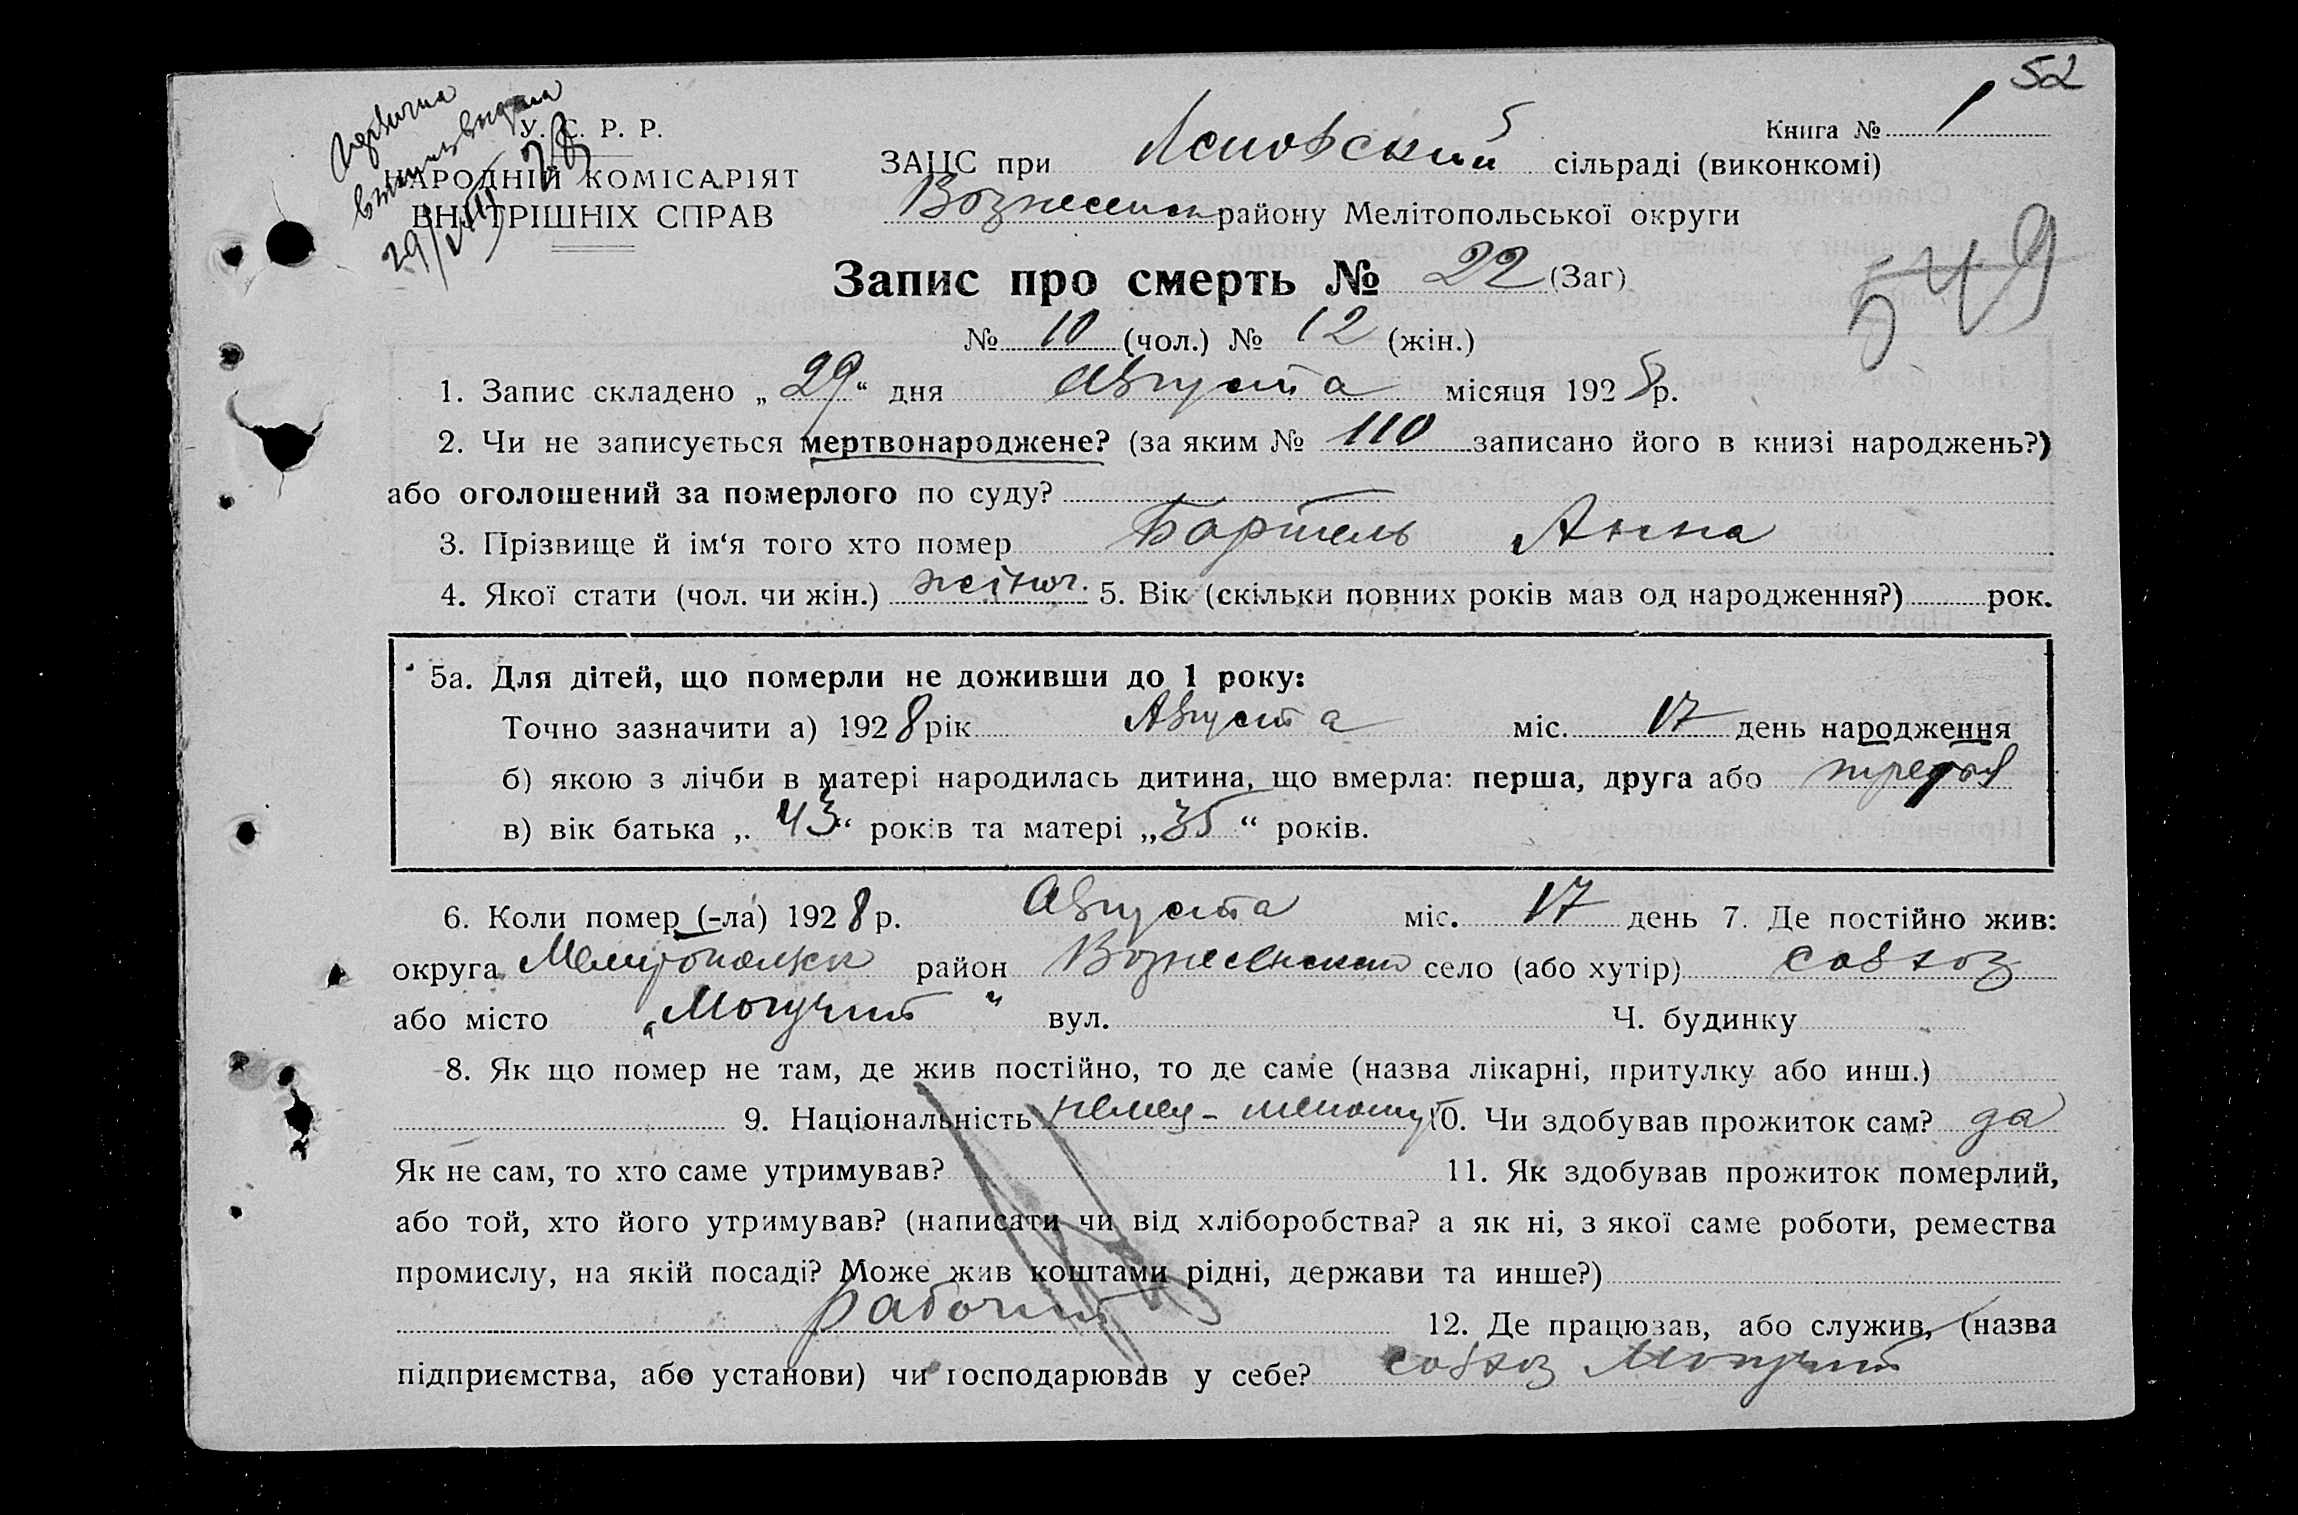 52
У. С. Р. Р.
Книга № 1
ЗАЦС при сільраді (виконкомі)
НАРОДНІЙ КОМІСАРІЯТ
Вознесенск району Мелітопольської округи
ВНУТРІШНІХ СПРАВ
29/VIII 28
549
Запис про смерть № 22 (Заг)
№ 10 (чол.) № 12 (жін.)
1. Запис складено „ 29 “ дня Августа місяця 1928 р.
2. Чи не записується мертвонароджене? (за яким № 110 записано його в книзі народжень?)
або оголошений за померлого по суду?
3. Прізвище й ім‘я того хто помер Бартель Анна
4. Якої стати (чол. чи жін.) жіноч. 5. Вік (скільки повних років мав од народження?) рок.
5а. Для дітей, що померли не доживши до 1 року:
Точно зазначити а) 1928 рік Августа міс. 17 день народження
б) якою з лічби в матері народилась дитина, що вмерла: перша, друга або третья
в) вік батька „ 43 “ років та матері „ 35 “ років.
6. Коли помер (-ла) 1928 р. Августа міс. 17 день 7. Де постійно жив:
округа район Вознесенский село (або хутір) совхоз
або місто „Могучий“ вул. Ч. будинку
8. Як що помер не там, де жив постійно, то де саме (назва лікарні, притулку або инш.)
9. Національність немец - менонит 10. Чи здобував прожиток сам? да
Як не сам, то хто саме утримував? 11. Як здобував прожиток померлий,
або той, хто його утримував? (написати чи від хліборобства? а як ні, з якої саме роботи, ремества
промислу, на якій посаді? Може жив коштами рідні, держави та инше?)
рабочий 12. Де працював, або служив, (назва
підприємства, або установи) чи господарював у себе? совхоз Могучий